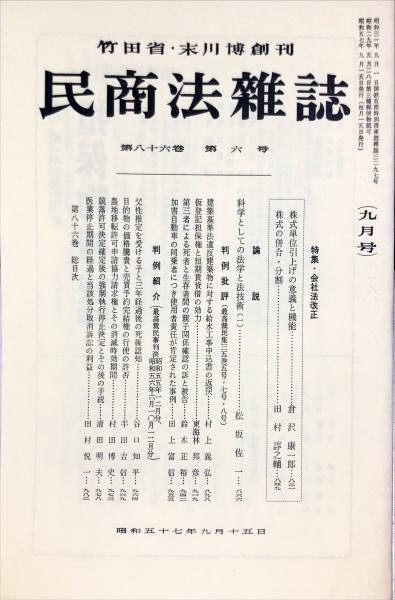 昭和三一年九月一日国鉄首都特別扱承認雑誌三二九七号
昭和二九年五月二八日第三種郵便物認可
昭和五七年九月一五日発行（毎月一五日発行）
竹田省・末川博創刊
民商法雑誌
第八十六巻 第六号
（九月号）
特集・会社法改正
株式単位引上げの意義と機能……倉沢康一郎…八二一
株式の併合・分割……田村諄之輔…八四九
論説
科学としての法学と法技術（一）……松坂佐一…八六六
判例批評（最高裁民集三五巻五号・七号・八号）
建築基準法違反建築物に対する給水工事申込書の返戻……村上義弘…八九八
仮登記担保権と短期賃貸借の効力……東海林邦彦…九一九
第三者による死者と生存者間の親子関係確認の訴と被告……鈴木正裕…九四三
加害自動車の同乗者につき使用者責任が肯定された事例……田上富信…九五三
判例紹介（最高裁民事判決昭和五五年一二月分、昭和五六年六月一〇月一二月分）
父性推定を受ける子と三年経過後の死後認知……谷口知平…九六四
目的物の価格騰貴と売買予約完結権の行使の許否……半田吉信…九六六
農地移転許可申請協力請求権とその消滅時効期間……村田博史…九七三
競落許可決定確定後の強制執行停止決定とその後の手続……清田明夫…九七八
医業停止期間の経過と当該処分取消訴訟の利益……田村悦一…九八三
第八十六巻 総目次
昭和五十七年九月十五日